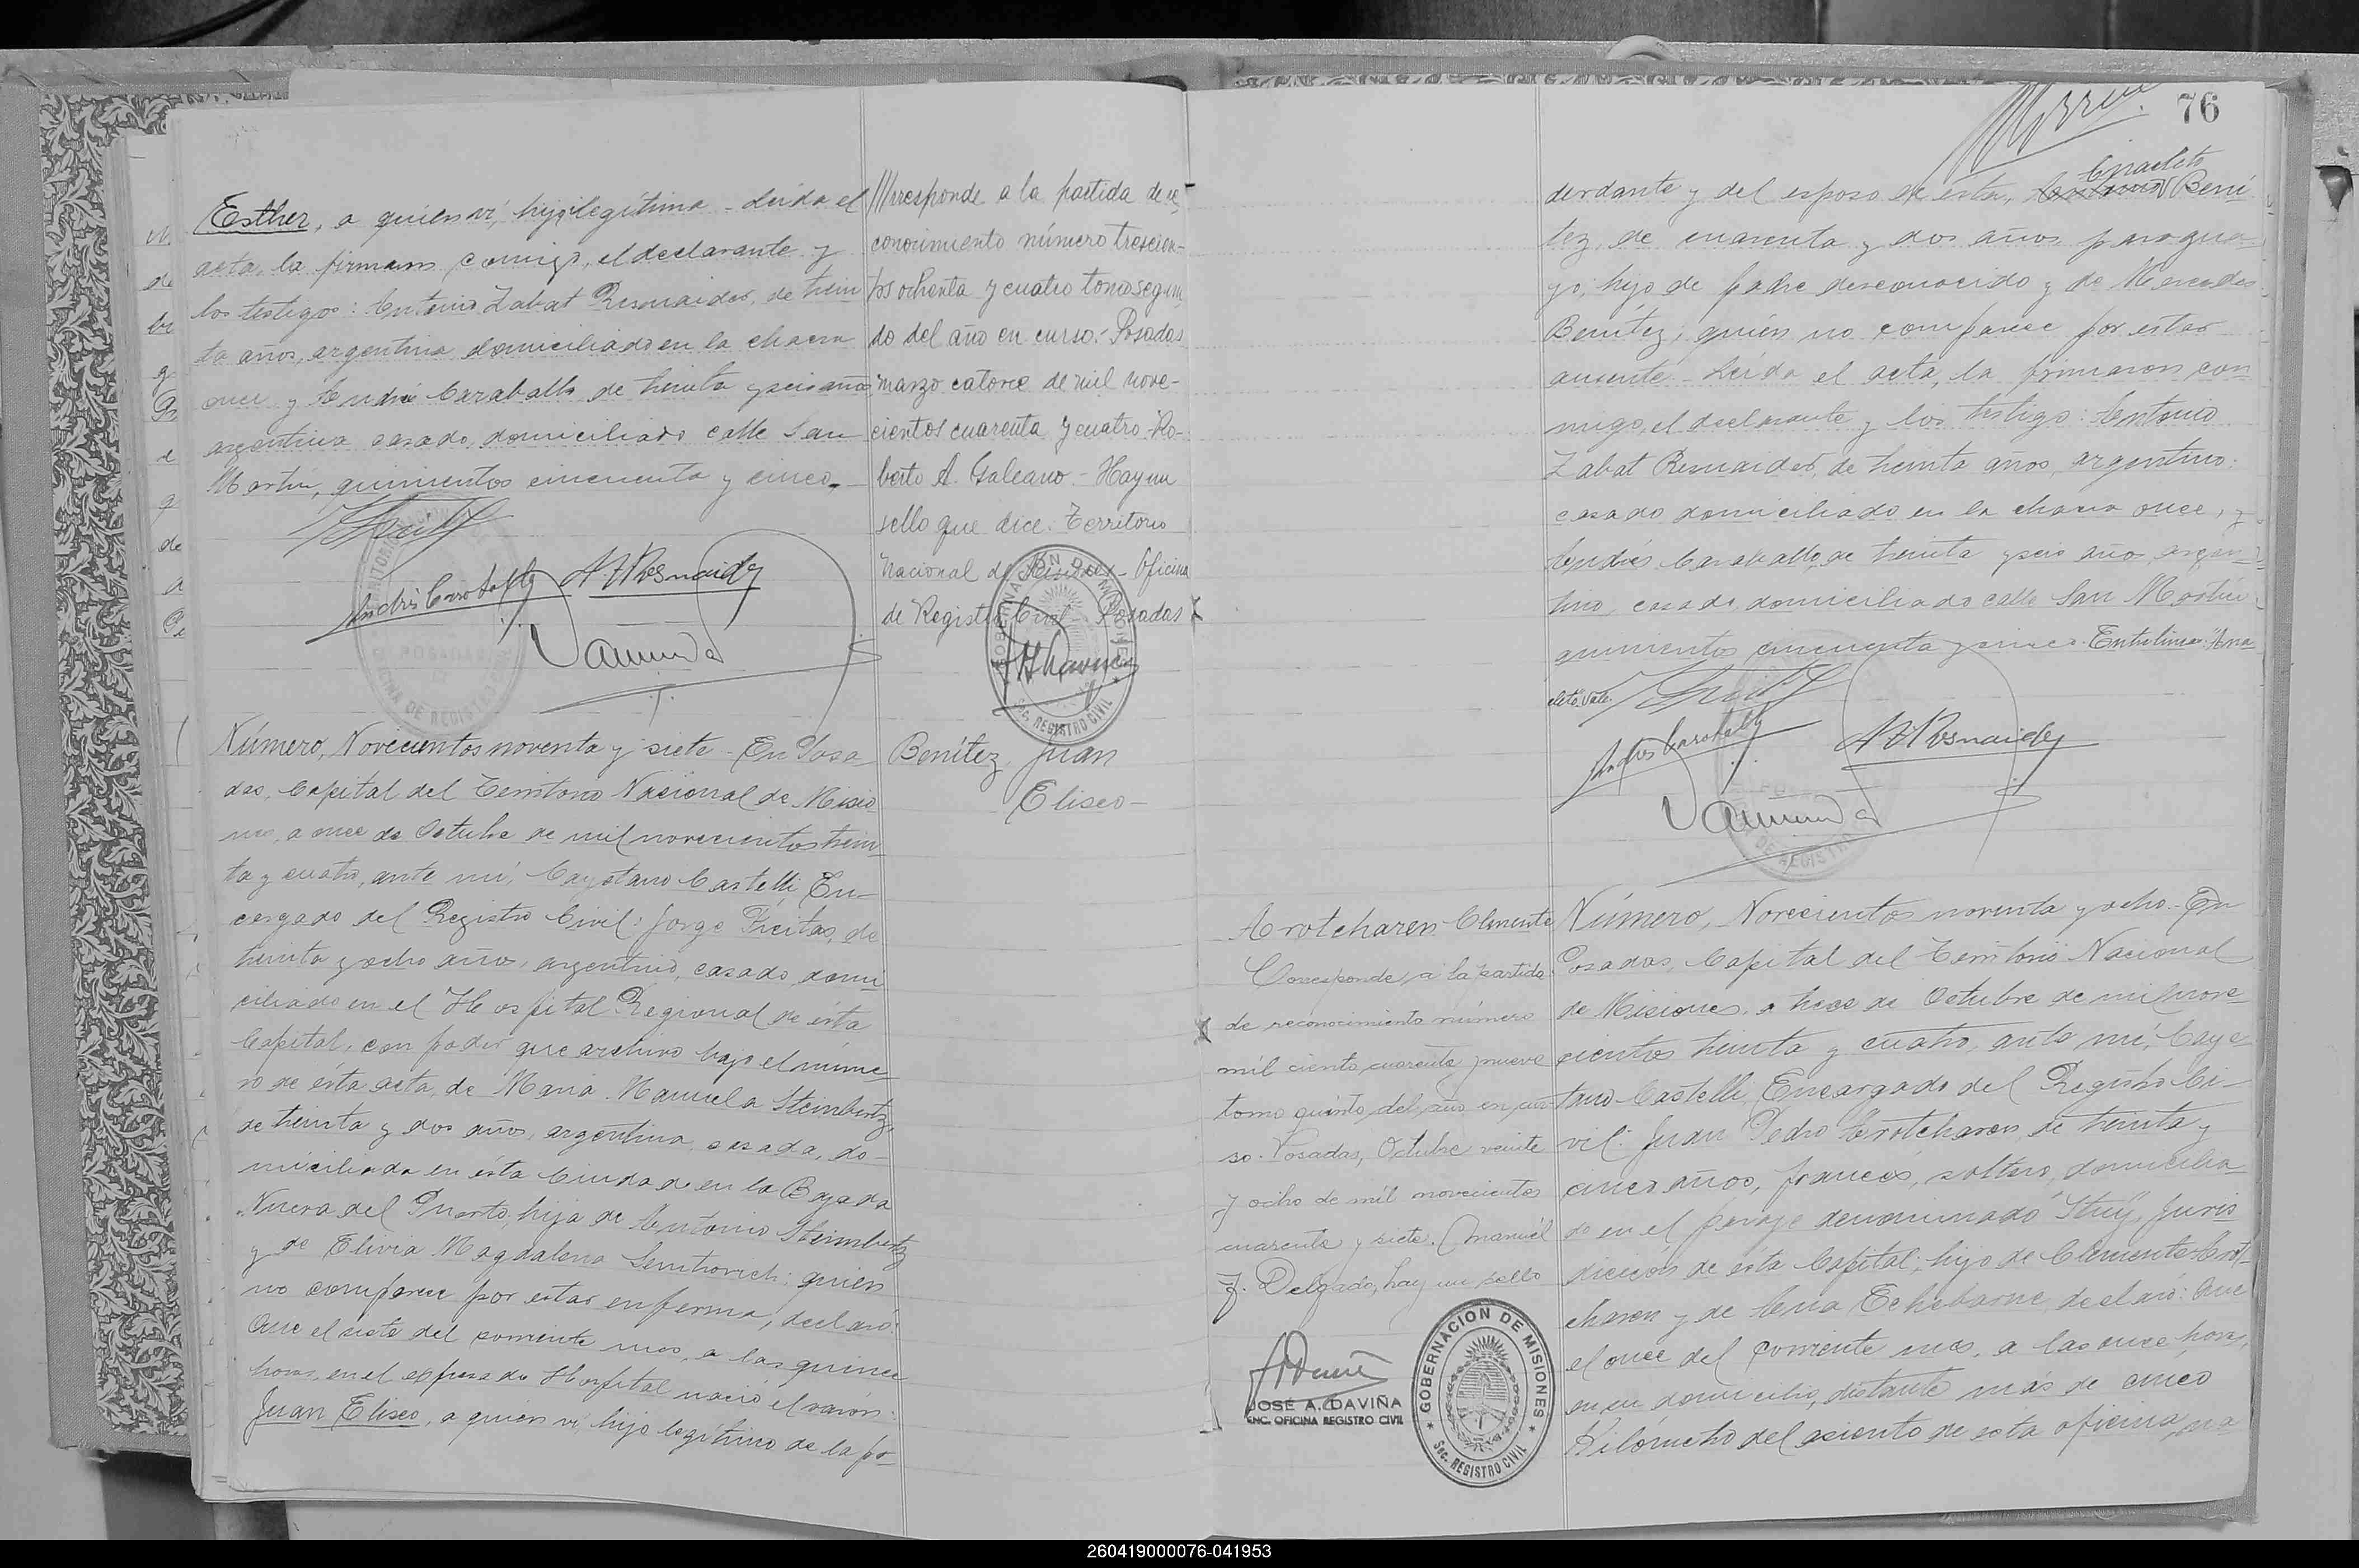 Esther, a quien ví, hija legítima - Leída el
acta, la firmaron conmigo, el declarante y
los testigos: Antonio Zabat Resnaider, de trein
ta años, argentino domiciliado en la chacra
once y Andrés Caraballo de treinta y seis años
argentino casado, domiciliado calle San
Martín, quinientos cincuenta y cinco.-
///rresponde a la partida de re-
conocimiento número trescien-
tos ochenta y cuatro tomo segun
do del año en curso.- Posadas
marzo catorce de mil nove-
cientos cuarenta y cuatro. Ro-
berto A. Galeano.- Hay un
sello que dice. Territorio
Nacional de Misiones - Oficina
de Registro Civil - Posadas
GOBERNACION DE MISIONES
SEC. REGISTRO CIVIL
Número, Novecientos noventa y siete - En Posa
das, Capital del Territorio Nacional de Misio
nes, a once de Octubre de mil novecientos trein
ta y cuatro, ante mí, Cayetano Castelli, En-
cargado del Registro Civil: Jorge Freitas, de
treinta y ocho años, argentino, casado, domi
ciliado en el Hospital Regional de ésta
Capital, con poder que archivo bajo el núme-
ro de ésta acta, de María Manuela Steimbertz,
de treinta y dos años, argentina, casada, do-
miciliada en ésta Ciudad en la Bajada
Nueva del Puerto, hija de Antonio Steimbertz
y de Elivia Magdalena quien
no comparece por estar enferma, declaró:
Que el siete del corriente mes, a las quince
horas, en el expresado Hospital nació el varón:
Juan Eliseo, a quien ví, hijo legítimo de la po-
Benítez Juan
Eliseo -
76
derdante y del esposo de ésta, Anacleto Bení
tez, de cuarenta y dos años paragua-
yo, hijo de padre desconocido y de Mercedes
Benítez; quién no comparece por estar
ausente.- Leída el acta, la firmaron con
migo, el declarante y los testigo: Antonio
Zabat Resnaider, de treinta años, argentino,
casado domiciliado en la chacra once, y
Andrés Caraballo, de treinta y seis años, argen-
tino, casado, domiciliado calle San Martín
quinientos cincuenta y cinco. Entrelinea: "Ana
cleto. Vale.
Arotcharen Clemente
Corresponde a la partida
de reconocimiento número
mil ciento cuarenta y nueve
tomo quinto del año en cur
so. Posadas, Octubre veinte
y ocho de mil novecientos
cuarenta y siete. Manuel
J. Delgado, hay un sello
JOSÉ A. DAVIÑA
ENC. OFICINA REGISTRO CIVIL
GOBERNACION DE MISIONES
SEC. REGISTRO CIVIL
Número, Novecientos noventa y ocho - En
Posadas, Capital del Territorio Nacional
de Misiones, a trece de Octubre de mil nove
cientos treinta y cuatro, ante mí, Caye
tano Castelli, Encargado del Registro Ci-
vil: Juan Pedro Arotcharen, de treinta y
cinco años, francés, soltero, domicilia
do en el paraje denominado Juris
dicción de ésta Capital; hijo de Clemente Arot-
charen y de Ana Echebarne, declaró: Que
el once del corriente mes, a las once horas,
en su domicilio, distante más de cinco
Kilómetro del asiento de esta oficina, na
260419000076-041953